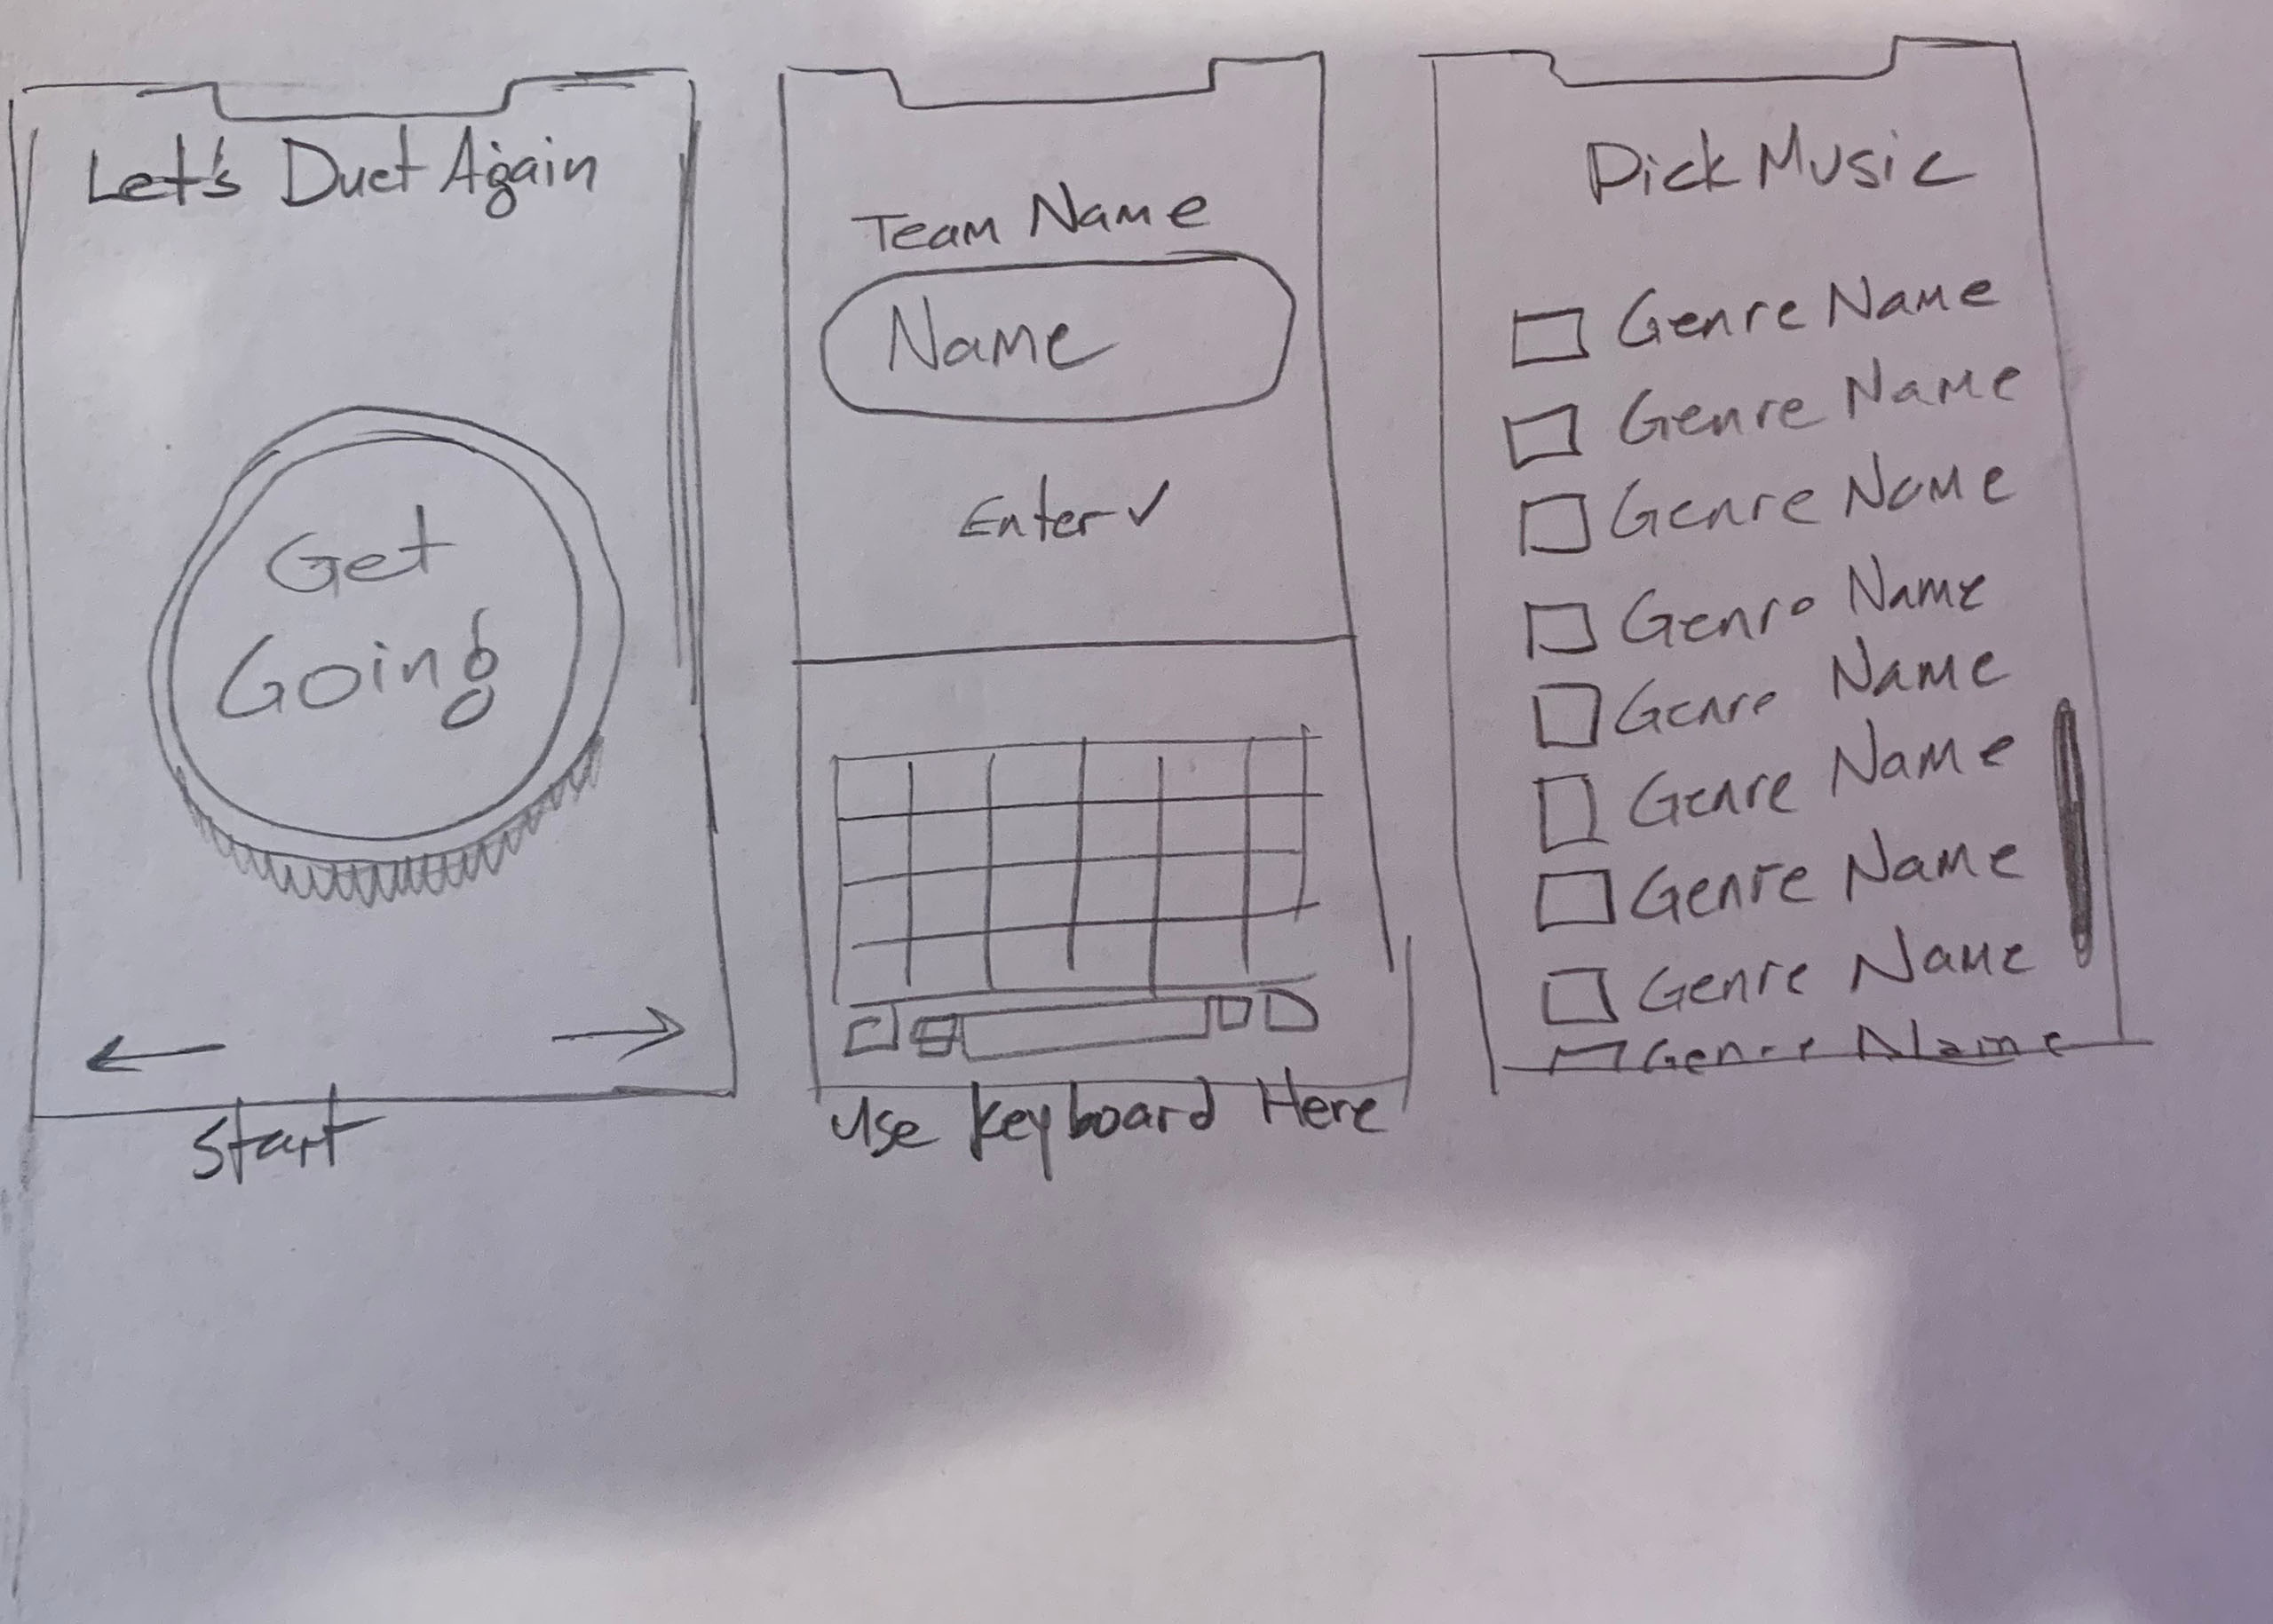 Let's Duet Again
Get
Going
Start
Team Name
Name
Enter ✓
Use Keyboard Here
Pick Music
Genre Name
Genre Name
Genre Name
Genre Name
Genre Name
Genre Name
Genre Name
Genre Name
Genre Name